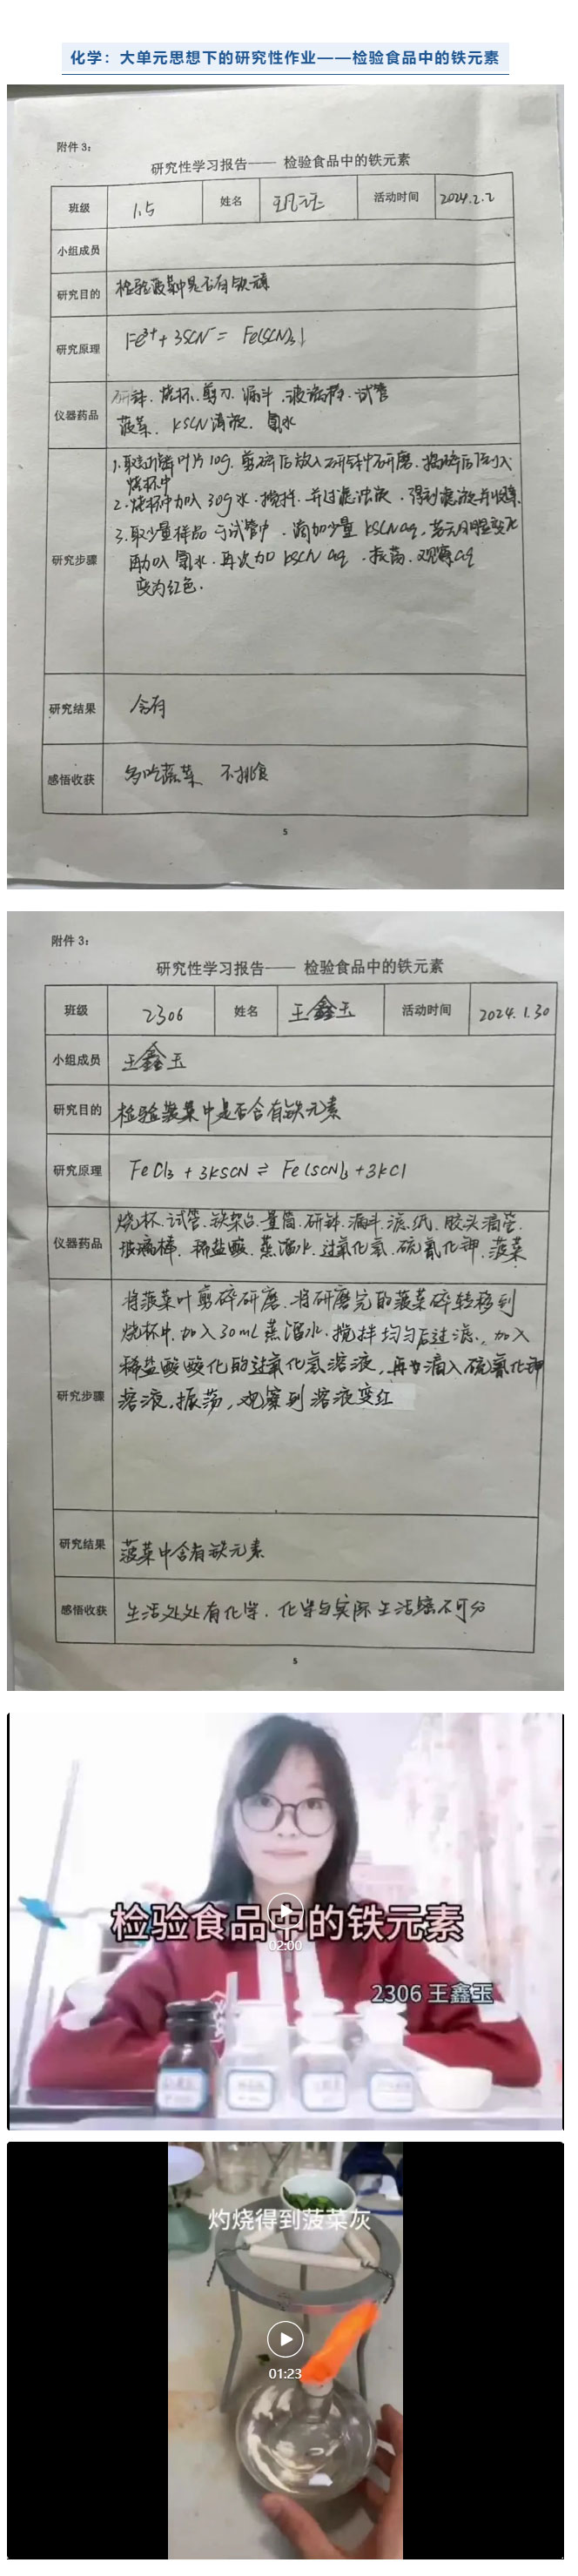 化学：大单元思想下的研究性作业——检验食品中的铁元素
附件3：
研究性学习报告—— 检验食品中的铁元素
班级 1.5 姓名 活动时间 2024.2.2
小组成员
研究目的 检验菠菜中是否有铁元素
研究原理 Fe³⁺+3SCN⁻= Fe(SCN)₃↓
仪器药品 研钵.烧杯.剪刀.漏斗.玻璃棒.试管
菠菜. KSCN溶液. 氯水
研究步骤
1.取新鲜叶片10g.剪碎后放入研钵中研磨.捣碎后倒入
烧杯中
2.烧杯中加入30g水.搅拌.并过滤浊液.得到滤液并收集.
3.取少量样品于试管中.滴加少量KSCN aq,若无明显变化
再加入氯水.再次加KSCN aq.振荡.观察aq
变为红色.
研究结果 含有
感悟收获 多吃蔬菜 不挑食
5
附件3：
研究性学习报告—— 检验食品中的铁元素
班级 2306 姓名 王鑫玉 活动时间 2024.1.30
小组成员 王鑫玉
研究目的 检验菠菜中是否含有铁元素
研究原理 FeCl₃+3KSCN⇌Fe(SCN)₃+3KCl
仪器药品 烧杯.试管.铁架台.量筒.研钵.漏斗.滤纸.胶头滴管.
玻璃棒.稀盐酸.蒸馏水.过氧化氢.硫氰化钾.菠菜
研究步骤
将菠菜叶剪碎研磨.将研磨完的菠菜碎转移到
烧杯中.加入30mL蒸馏水.搅拌均匀后过滤.,加入
稀盐酸酸化的过氧化氢溶液,再滴入硫氰化钾
溶液,振荡,观察到溶液变红
研究结果 菠菜中含有铁元素
感悟收获 生活处处有化学.化学与实际生活密不可分
5
检验食品中的铁元素
02:00
2306 王鑫玉
灼烧得到菠菜灰
01:23